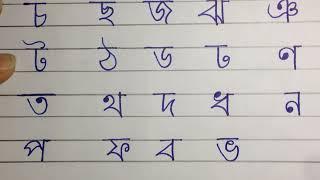 চ ছ জ ঝ ঞ
ট ঠ ড ঢ ণ
ত থ দ ধ ন
প ফ ব ভ